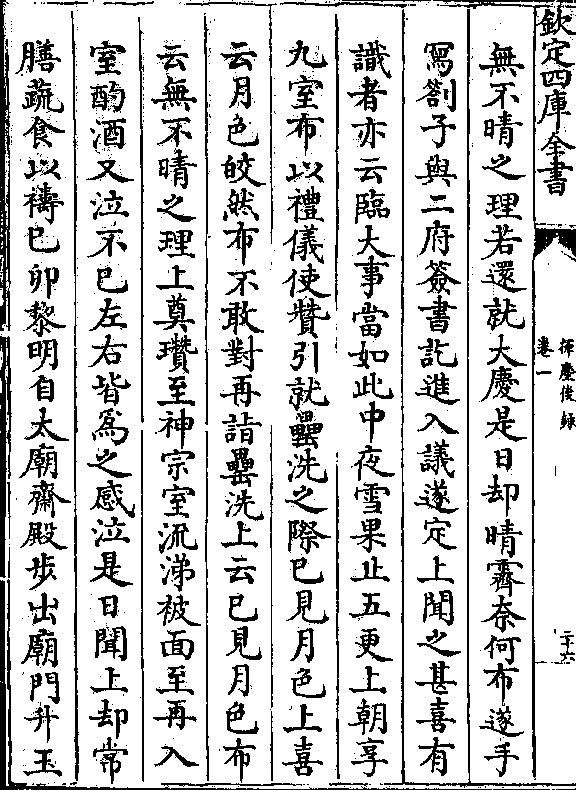 欽定四庫全書
揮麈後錄
卷一
二十六
無不晴之理若還就大慶是日却晴霽奈何布遂手
寫劄子與二府簽書訖進入議遂定上聞之甚喜有
識者亦云臨大事當如此中夜雪果止五更上朝享
九室布以禮儀使贊引就罍洗之際已見月色上喜
云月色皎然布不敢對再詣罍洗上云已見月色布
云無不晴之理上奠瓚至神宗室流涕被面至再入
室酌酒又泣不已左右皆為之感泣是日聞上却常
膳蔬食以禱已卯黎明自太廟齋殿步出廟門升玉